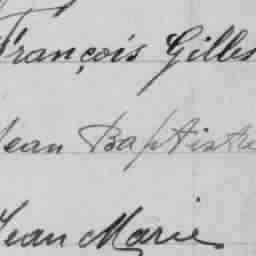 François Gilles
Jean Baptiste
Jean Marie